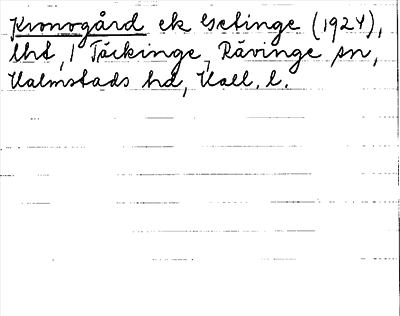 Kronogård ek Getinge (1924),
lht, 1 Täckinge, Rävinge sn,
Halmstads hd, Hall. l.